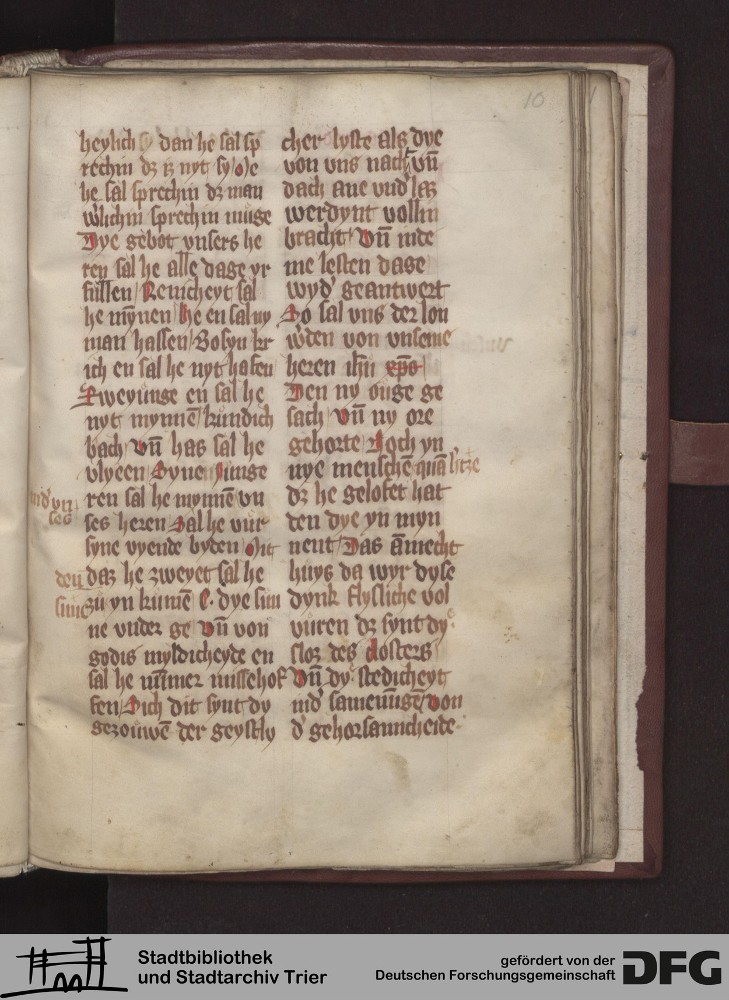 10
heylich sy dan he sal sp
rechin dz iz nyt sy e
he sal sprechin dz man
wlichin sprechin muge
Dye gebot vnsers he
ren sal he alle dage yr
fullen Reinicheyt sal
he mynen He en sal ny
man hassen Bosyn kr
ich en sal he nyt hafen
Zweyunge en sal he
nyt mynnē kundich
bach Vn̄ has sal he
vlyeen Syne Junge
ren sal he mynnē vn
ses heren Sal he vur
syne vyende byden Mit
den daz he zweyet sal he
zu yn kumē E dye sun
ne vnder ge Vn̄ von
godis myldicheyde en
sal he nūmer missehof
fen Sich dit synt dy
gezouwē der geystly
cher lyste als dye
von vns nach vn̄
dach ane vnd' laz
werdynt vollin
bracht Vn̄ inde
me lesten dage
wyd' geantwert
So sal vns der lon
w'den von vnseme
heren ihū xp̄o
Den ny ouge ge
sach Vn̄ ny ore
gehorte Noch yn
nye menschē quā h'tze
dz he gelofet hat
den dye yn myn
nent Das āmecht
huys da wyr dyse
dynk flysliche vol
vuren dz synt dy
sloz des Closters
Vn̄ dy stedicheyt
in d' sameūge von
d' gehorsamcheide
Stadtbibliothek
und Stadtarchiv Trier
gefördert von der
Deutschen Forschungsgemeinschaft
DFG